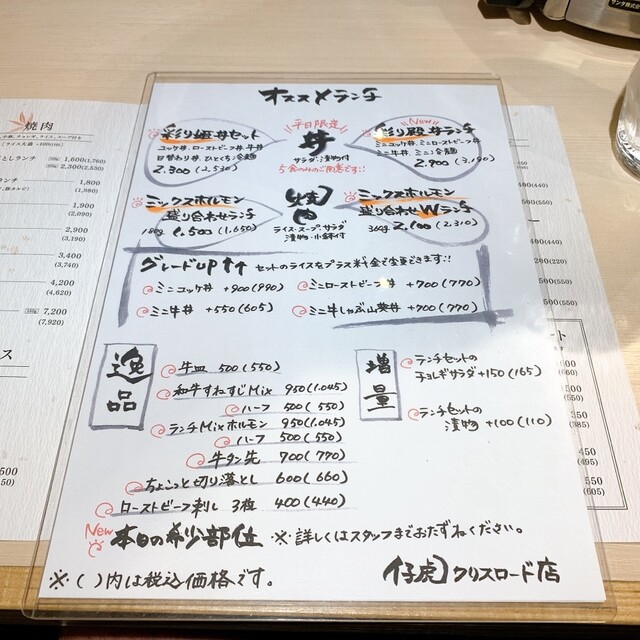 サンタ株式会
オススメランチ
彩り姫丼セット
ユッケ丼、ローストビーフ丼、牛丼
日替わり丼、ひとくち冷麺
2,300(2,530)
平日限定
丼
サラダ・漬物付
5食のみのご用意です!!
New
彩り殿丼ランチ
ミニユッケ丼、ミニローストビーフ丼
ミニ牛丼、ミニ冷麺
2,900(3,190)
ミックスホルモン
盛り合わせランチ
180g 1,500(1,650)
焼
ライス・スープ・サラダ
漬物・小鉢付
ミックスホルモン
盛り合わせWランチ
360g 2,100(2,310)
グレードUP↑↑ セットのライスをプラス料金で変更できます!!
ミニユッケ丼 +900(990)
ミニローストビーフ丼 +700(770)
ミニ牛丼 +550(605)
ミニ牛しゃぶ山葵丼 +700(770)
逸品
牛皿 500(550)
和牛すねすじMix 950(1,045)
ハーフ 500(550)
ランチMixホルモン 950(1,045)
ハーフ 500(550)
牛タン先 700(770)
ちょこっと切り落とし 600(660)
ローストビーフ刺し 3枚 400(440)
増量
ランチセットの
チョレギサラダ +150(165)
ランチセットの
漬物 +100(110)
New
本日の希少部位 ※詳しくはスタッフまでおたずねください。
※( )内は税込価格です。
仔虎 クリスロード店
焼肉
1,600(1,760)
2,300(2,530)
1,800
(1,980)
1,900
(2,090)
2,900
(3,190)
3,400
(3,740)
4,200
(4,620)
7,200
(7,920)